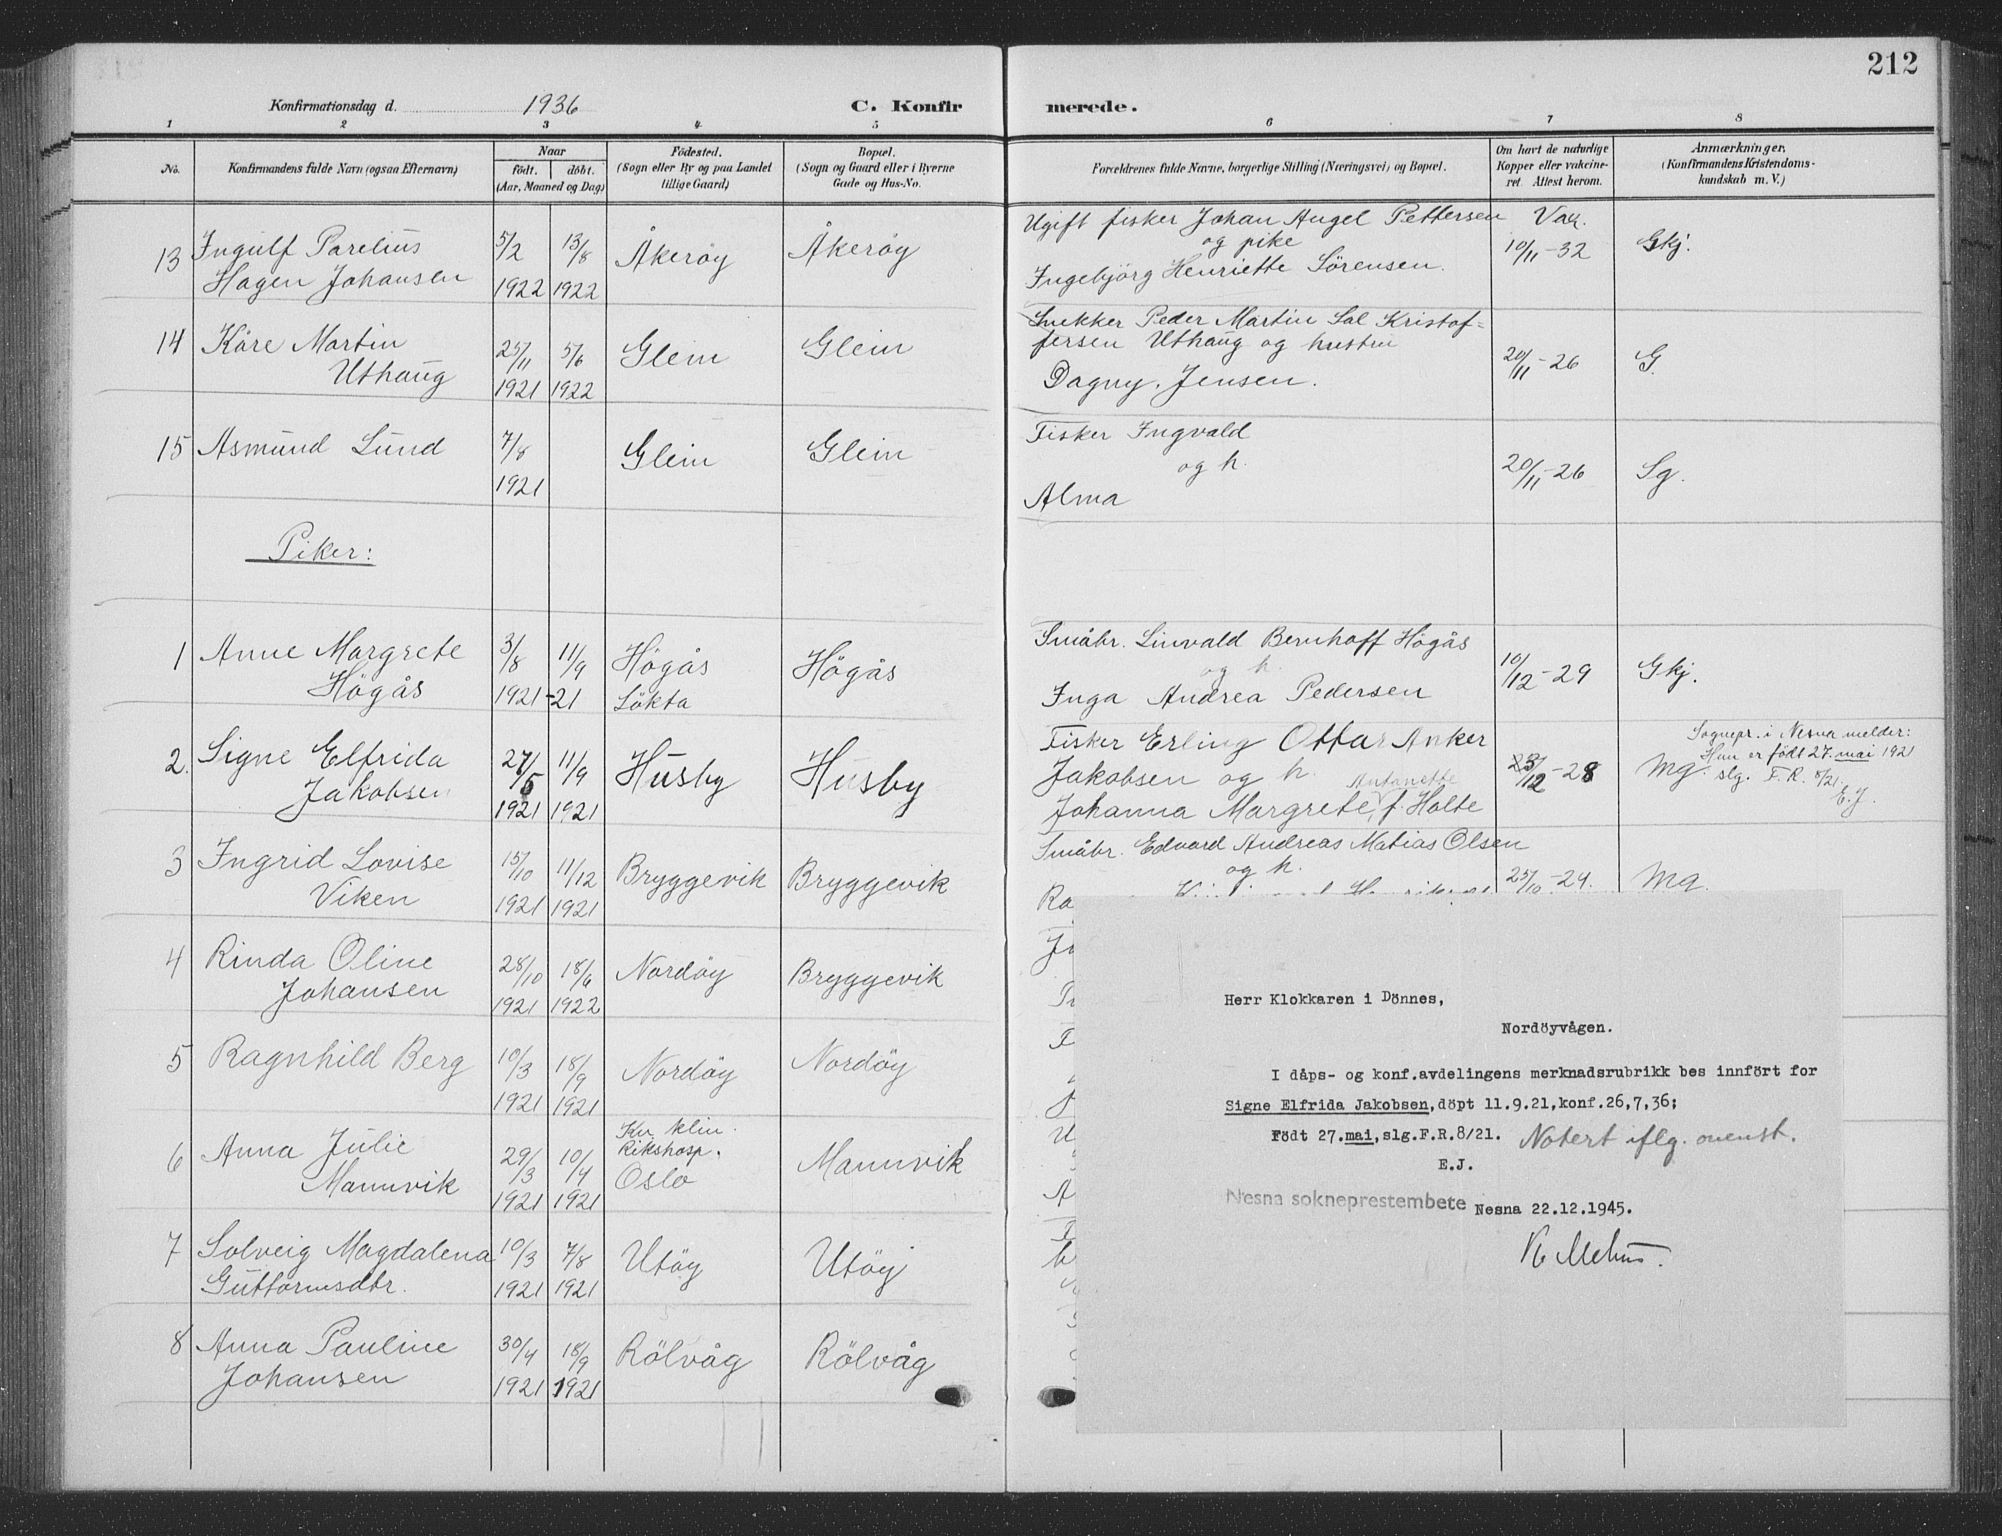 212
Konfirmationsdag d. 1936 C. Konfir merede.
1 2 3 4 5 6 7 8
No. Konfirmandens fulde Navn (ogsaa Efternavn) Naar født. døbt. (Aar, Maaned og Dag) Fødested. (Sogn eller By og paa Landet tillige Gaard) Bopæl. (Sogn og Gaard eller i Byerne Gade og Hus-No. Forældrenes fulde Navne, borgerlige Stilling (Næringsvei) og Bopæl. Om havt de naturlige Kopper eller vakcineret. Attest herom. Anmærkninger. (Konfirmandens Kristendomskundskab m. V.)
13 Ingulf Parelius 5/2 13/8 Åkeröy Åkeröy Ugift fisker Johan Angel Pettersen Vax.
og pike 10/11-32 Gkj.
Hagen Johansen 1922 1922 Ingebjörg Henriette Sörensen.
14 Kåre Martin 25/11 5/6 Glein Glein Snekker Peder Martin Sal Kristof=
Uthaug fersen Uthaug og hustru 20/11-26 G.
1921 1922 Dagny. Jensen.
15 Asmund Lund 7/8 Glein Glein Fisker Ingvald
og h. 20/11-26 Sg.
1921 Alma
Piker:
1 Anne Margrete 3/8 11/9 Högås Högås Småbr. Linvald Bernhoff Högås
Högås og h. 10/12-29 Gkj.
1921-21 Lökta Inga Andrea Pedersen
2. Signe Elfrida 27/5 11/9 Husby Husby Fisker Erling Ottar Anker Sognepr. i Nesna melder:
Jakobsen Jakobsen og h. Antonette 23/12-28 Mg. Hun er födt 27. mai 1921
slg. F. R. 8/21.
1921 1921 Johanna Margrete, f. Holte E.J.
3 Ingrid Lovise 15/10 11/12 Bryggevik Bryggevik Småbr. Edvard Andreas Matias Olsen
Viken og h. 25/10-29. Mg.
1921 1921 Ra
4 Rinda Oline 28/10 18/6 Nordöy Bryggevik
Johansen 1921 1922
5 Ragnhild Berg 10/3 18/9 Nordöy Nordöy
1921 1921
6 Anna Julie 29/3 10/4 Kv. klin. Rikshosp. Oslo Mannvik
Mannvik 1921 1921
7 Solveig Magdalena 10/3 7/8 Utöy Utöy
Guttormsdtr. 1921 1921
8 Anna Pauline 30/4 18/9 Rölvåg Rölvåg
Johansen 1921 1921
Herr Klokkaren i Dönnes,
Nordöyvågen.
I dåps- og konf.avdelingens merknadsrubrikk bes innfört for
Signe Elfrida Jakobsen, döpt 11.9.21, konf.26,7,36;
Födt 27.mai, slg.F.R.8/21. Notert iflg. ovenst.
E.J.
Nesna sokneprestembete Nesna 22.12.1945.